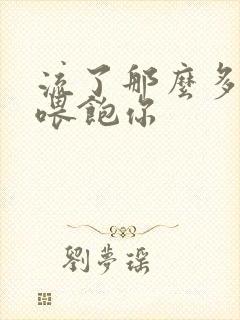 流了那麼多
喂飽你
劉夢瑶